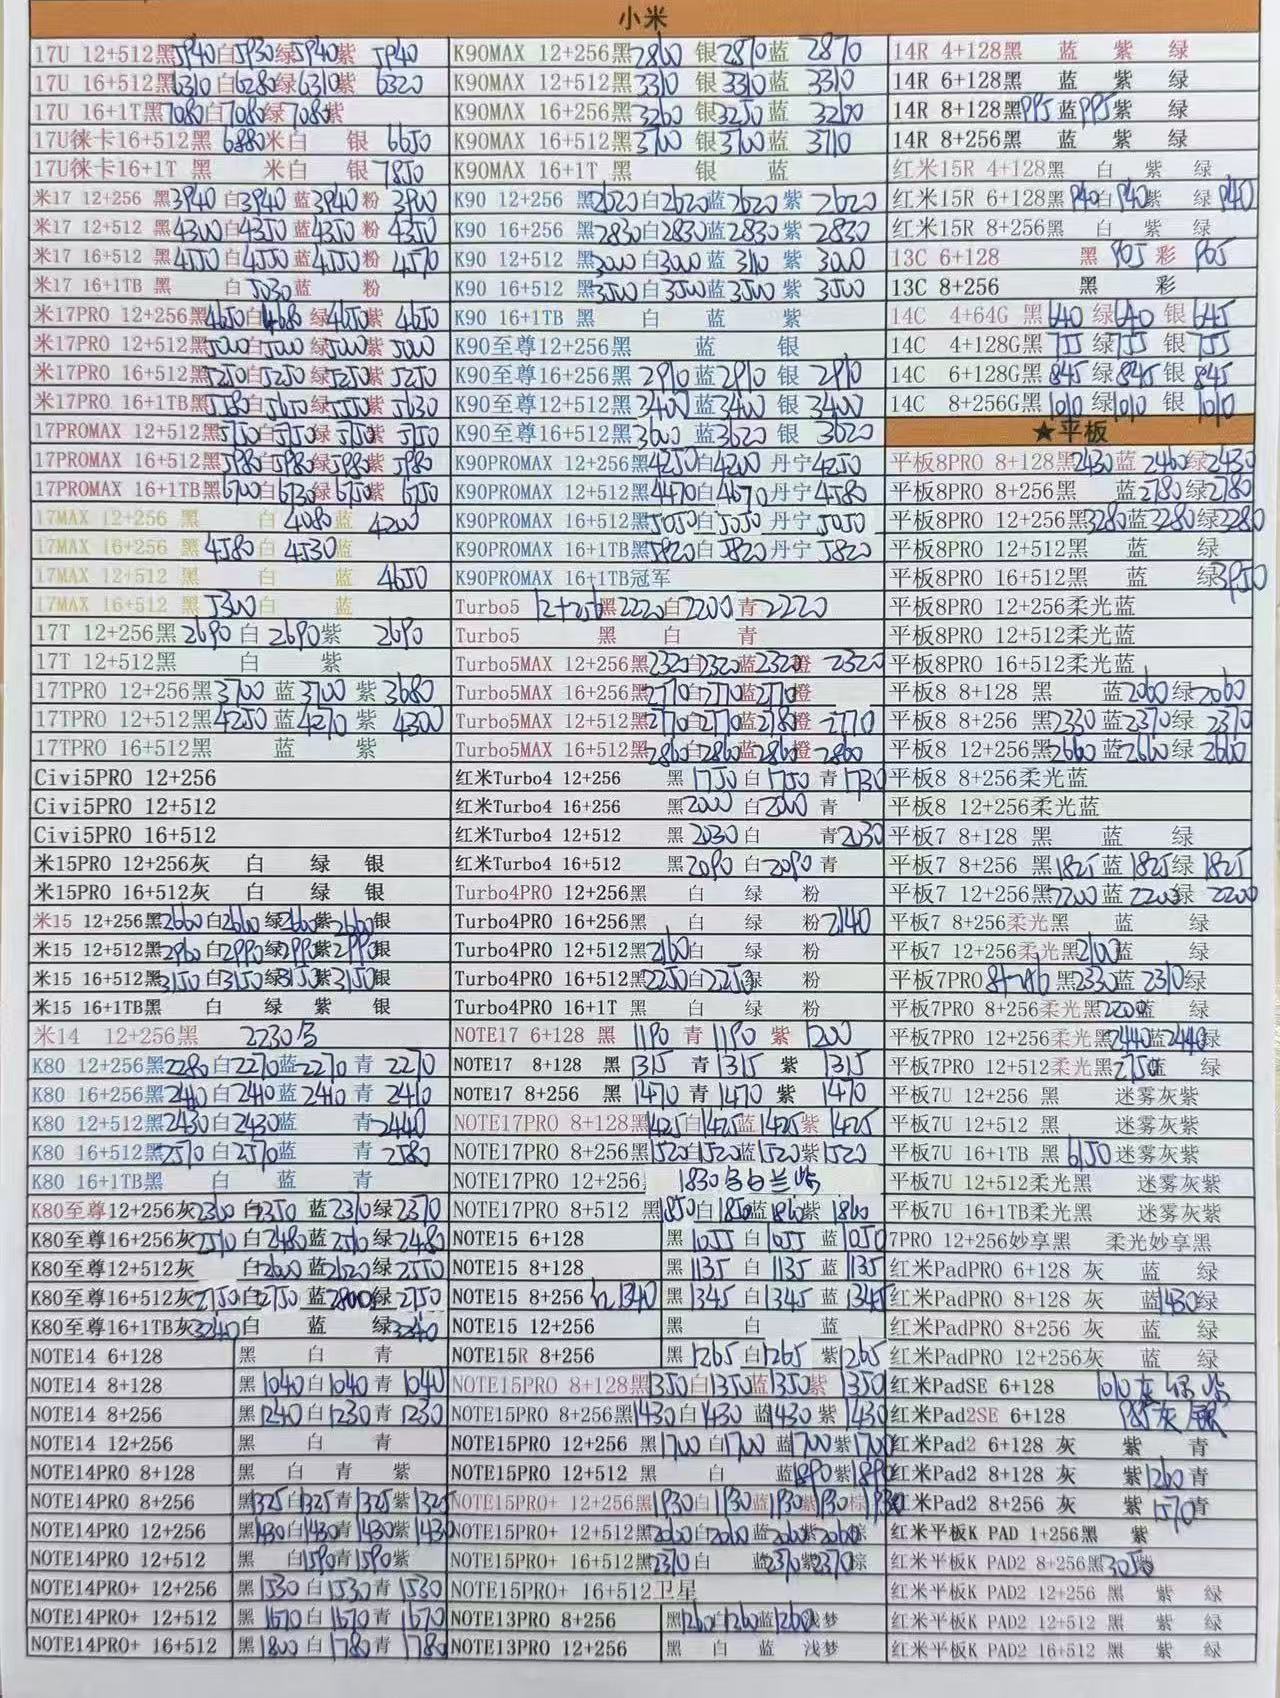 小米
17U 12+512黑5940白5930绿5940紫 5940
17U 16+512黑6310白6280绿6310紫 6320
17U 16+1T黑7080白7080绿7080紫
17U徕卡16+512黑 6880米白 银 6650
17U徕卡16+1T 黑 米白 银 7850
米17 12+256 黑3940白3940蓝3940粉 3900
米17 12+512 黑4300白4350蓝4350粉 4350
米17 16+512 黑4550白4550蓝4550粉 4570
米17 16+1TB 黑 白5030蓝 粉
米17PRO 12+256黑4650白4680绿4650紫 4650
米17PRO 12+512黑5000白5000绿5000紫 5000
米17PRO 16+512黑5250白5250绿5250紫 5250
米17PRO 16+1TB黑5580白5650绿5550紫 5630
17PROMAX 12+512黑5150白5150绿5150紫 5150
17PROMAX 16+512黑5980白5980绿5980紫 5980
17PROMAX 16+1TB黑6700白6730绿6750紫 6750
17MAX 12+256 黑 白4080蓝 4200
17MAX 16+256 黑4580白4530蓝
17MAX 12+512 黑 白 蓝 4650
17MAX 16+512 黑5300白 蓝
17T 12+256黑2690白2690紫 2690
17T 12+512黑 白 紫
17TPRO 12+256黑3700蓝3700紫 3680
17TPRO 12+512黑4250蓝4270紫 4300
17TPRO 16+512黑 蓝 紫
Civi5PRO 12+256
Civi5PRO 12+512
Civi5PRO 16+512
米15PRO 12+256灰 白 绿 银
米15PRO 16+512灰 白 绿 银
米15 12+256黑2660白2660绿2660紫2660银
米15 12+512黑2960白2990绿2990紫2990银
米15 16+512黑3150白3150绿3150紫3150银
米15 16+1TB黑 白 绿 紫 银
米14 12+256黑 2230
K80 12+256黑2280白2270蓝2270青 2270
K80 16+256黑2410白2410蓝2410青 2410
K80 12+512黑2430白2430蓝 青2440
K80 16+512黑2570白2570蓝 青2580
K80 16+1TB黑 白 蓝 青
K80至尊12+256灰2360白2350蓝2310绿2370
K80至尊16+256灰2510白2480蓝2510绿2480
K80至尊12+512灰 白2600蓝2620绿2550
K80至尊16+512灰2750白2750蓝2800绿2750
K80至尊16+1TB灰3240白 蓝 绿3240
NOTE14 6+128 黑 白 青
NOTE14 8+128 黑1040白1040青1040
NOTE14 8+256 黑1240白1230青1230
NOTE14 12+256 黑 白 青
NOTE14PRO 8+128 黑 白 青 紫
NOTE14PRO 8+256 黑1325白1325青1325紫1325
NOTE14PRO 12+256 黑1430白1430青1430紫1430
NOTE14PRO 12+512 黑 白1590青1590紫
NOTE14PRO+ 12+256 黑1530白1530青1530
NOTE14PRO+ 12+512 黑1670白1670青1670
NOTE14PRO+ 16+512 黑1800白1780青1780
K90MAX 12+256黑2860银2870蓝 2870
K90MAX 12+512黑3310银3310蓝 3310
K90MAX 16+256黑3260银3250蓝 3260
K90MAX 16+512黑3700银3700蓝 3710
K90MAX 16+1T 黑 银 蓝
K90 12+256 黑2620白2620蓝2620紫 2620
K90 16+256 黑2830白2830蓝2830紫 2830
K90 12+512 黑3000白3000蓝3110紫 3000
K90 16+512 黑3500白3500蓝3500紫 3500
K90 16+1TB 黑 白 蓝 紫
K90至尊12+256黑 蓝 银
K90至尊16+256黑2910蓝2910银 2910
K90至尊12+512黑3400蓝3400银 3400
K90至尊16+512黑3600蓝3620银 3620
K90PROMAX 12+256黑4250白4200丹宁4250
K90PROMAX 16+256黑4470白4670丹宁4580
K90PROMAX 16+512黑5050白5050丹宁5050
K90PROMAX 16+1TB黑5820白5820丹宁5820
K90PROMAX 16+1TB冠军
Turbo5 12+256黑2220白2200青2220
Turbo5 黑 白 青
Turbo5MAX 12+256黑2320白2320蓝2320橙 2320
Turbo5MAX 16+256黑2770白2770蓝2770橙
Turbo5MAX 12+512黑2770白2770蓝2780橙 2770
Turbo5MAX 16+512黑2860白2860蓝2860橙 2860
红米Turbo4 12+256 黑1750白1750青1730
红米Turbo4 16+256 黑2000白2000青
红米Turbo4 12+512 黑2030白 青2030
红米Turbo4 16+512 黑2090白2090青
Turbo4PRO 12+256黑 白 绿 粉
Turbo4PRO 16+256黑 白 绿 粉2140
Turbo4PRO 12+512黑2160白 绿 粉
Turbo4PRO 16+512黑2250白2250绿 粉
Turbo4PRO 16+1T 黑 白 绿 粉
NOTE17 6+128 黑 1190青1190紫 1200
NOTE17 8+128 黑 1315青1315紫 1315
NOTE17 8+256 黑1470青1470紫 1470
NOTE17PRO 8+128黑1425白1425蓝1425紫 1425
NOTE17PRO 8+256黑1520白1520蓝1520紫1520
NOTE17PRO 12+256 1830 白兰紫
NOTE17PRO 8+512 黑1850白1850蓝1860紫 1860
NOTE15 6+128 黑1055白1055蓝1050
NOTE15 8+128 黑1135白1135蓝1135
NOTE15 8+256 1340 黑1345白1345蓝1345
NOTE15 12+256 黑 白 蓝
NOTE15R 8+256 黑1265白1265紫1265
NOTE15PRO 8+128黑1350白1350蓝1350紫 1350
NOTE15PRO 8+256黑1430白1430蓝1430紫1430
NOTE15PRO 12+256 黑1700白1700蓝1700紫1700
NOTE15PRO 12+512 黑 白 蓝1890紫1890
NOTE15PRO+ 12+256黑1930白1930蓝1930紫1930棕1930
NOTE15PRO+ 12+512黑2060白2060蓝2060紫2060棕
NOTE15PRO+ 16+512黑2370白 蓝2370紫2370棕
NOTE15PRO+ 16+512卫星
NOTE13PRO 8+256 黑1260白1260蓝1260浅梦
NOTE13PRO 12+256 黑 白 蓝 浅梦
14R 4+128黑 蓝 紫 绿
14R 6+128黑 蓝 紫 绿
14R 8+128黑995蓝995紫 绿
14R 8+256黑 蓝 紫 绿
红米15R 4+128黑 白 紫 绿
红米15R 6+128黑940白940紫 绿940
红米15R 8+256黑 白 紫 绿
13C 6+128 黑 905彩 905
13C 8+256 黑 彩
14C 4+64G 黑640绿640银645
14C 4+128G黑755绿755银755
14C 6+128G黑845绿845银845
14C 8+256G黑1010绿1010银 1010
★平板
平板8PRO 8+128黑2430蓝2460绿2430
平板8PRO 8+256黑 蓝2780绿2780
平板8PRO 12+256黑3280蓝3280绿2280
平板8PRO 12+512黑 蓝 绿
平板8PRO 16+512黑 蓝 绿3950
平板8PRO 12+256柔光蓝
平板8PRO 12+512柔光蓝
平板8PRO 16+512柔光蓝
平板8 8+128 黑 蓝2060绿2060
平板8 8+256 黑2330蓝2370绿2370
平板8 12+256黑2660蓝2660绿2660
平板8 8+256柔光蓝
平板8 12+256柔光蓝
平板7 8+128 黑 蓝 绿
平板7 8+256 黑1825蓝1825绿1825
平板7 12+256黑2200蓝2200绿2200
平板7 8+256柔光黑 蓝 绿
平板7 12+256柔光黑2100蓝 绿
平板7PRO 8+256黑2330蓝2310绿
平板7PRO 8+256柔光黑2200蓝 绿
平板7PRO 12+256柔光黑2440蓝2440绿
平板7PRO 12+512柔光黑2750蓝 绿
平板7U 12+256 黑 迷雾灰紫
平板7U 12+512 黑 迷雾灰紫
平板7U 16+1TB 黑6150迷雾灰紫
平板7U 12+512柔光黑 迷雾灰紫
平板7U 16+1TB柔光黑 迷雾灰紫
7PRO 12+256妙享黑 柔光妙享黑
红米PadPRO 6+128 灰 蓝 绿
红米PadPRO 8+128 灰 蓝1430绿
红米PadPRO 8+256 灰 蓝 绿
红米PadPRO 12+256灰 蓝 绿
红米PadSE 6+128 1010灰绿紫
红米Pad2SE 6+128 985灰银
红米Pad2 6+128 灰 紫 青
红米Pad2 8+128 灰 紫1260青
红米Pad2 8+256 灰 紫1570青
红米平板K PAD 1+256黑 紫
红米平板K PAD2 8+256黑3050紫
红米平板K PAD2 12+256 黑 紫 绿
红米平板K PAD2 12+512 黑 紫 绿
红米平板K PAD2 16+512 黑 紫 绿